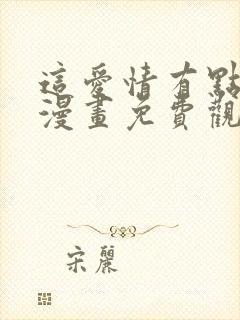 這愛情有點
漫畫免費觀
宋麗